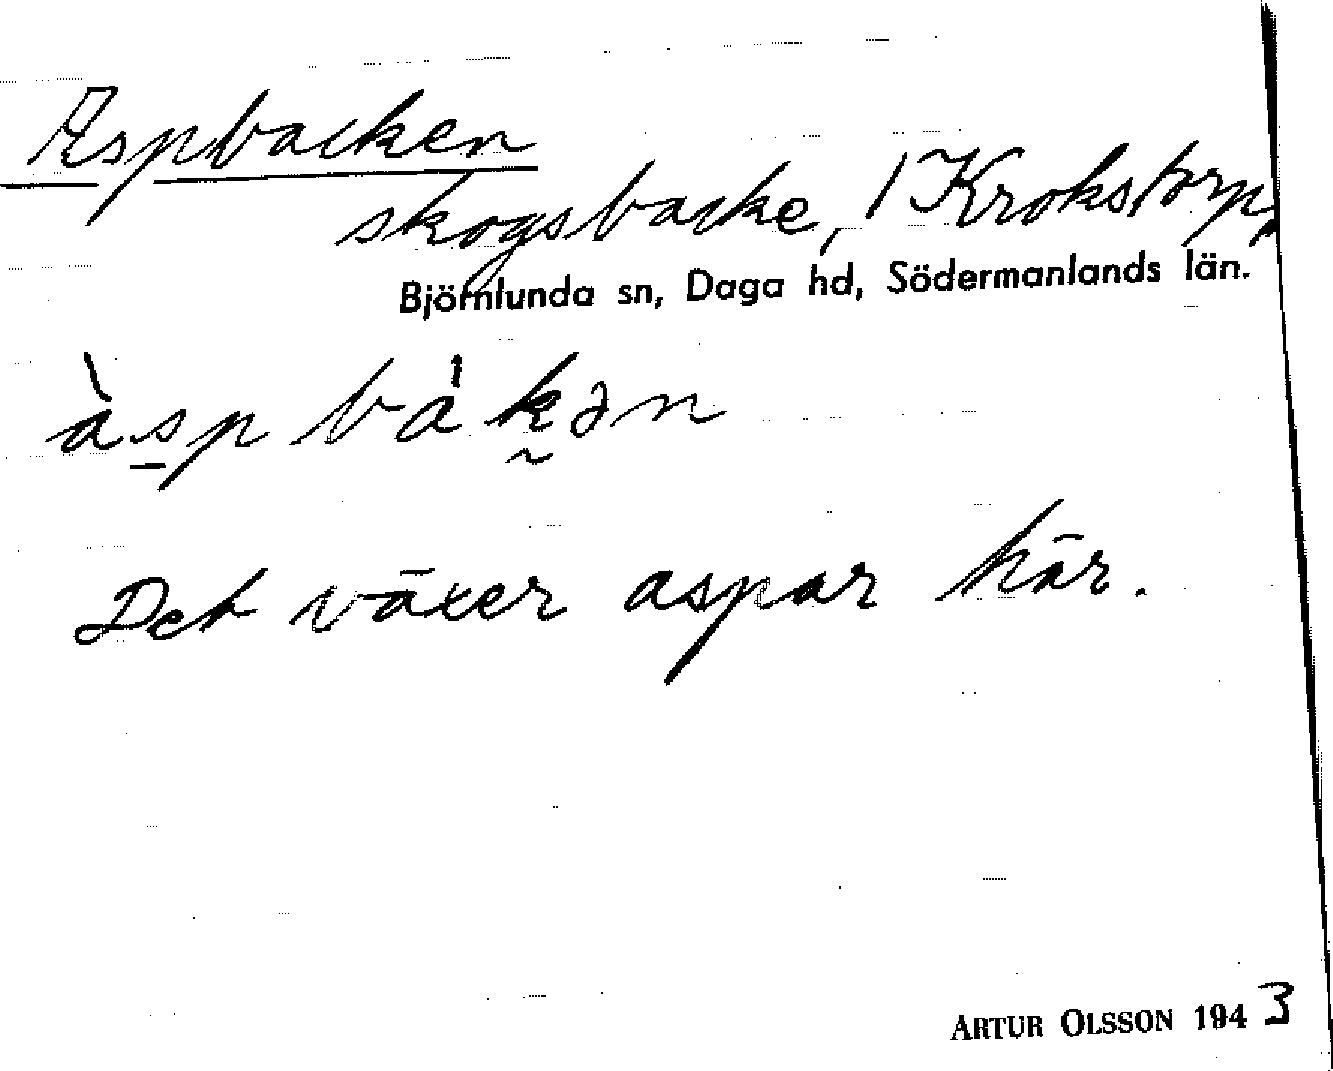 Aspbacken
skogsbacke, 1 Krokstorp,
Björnlunda sn, Daga hd, Södermanlands län.
àspbákən
Det växer aspar här.
ARTUR OLSSON 1943